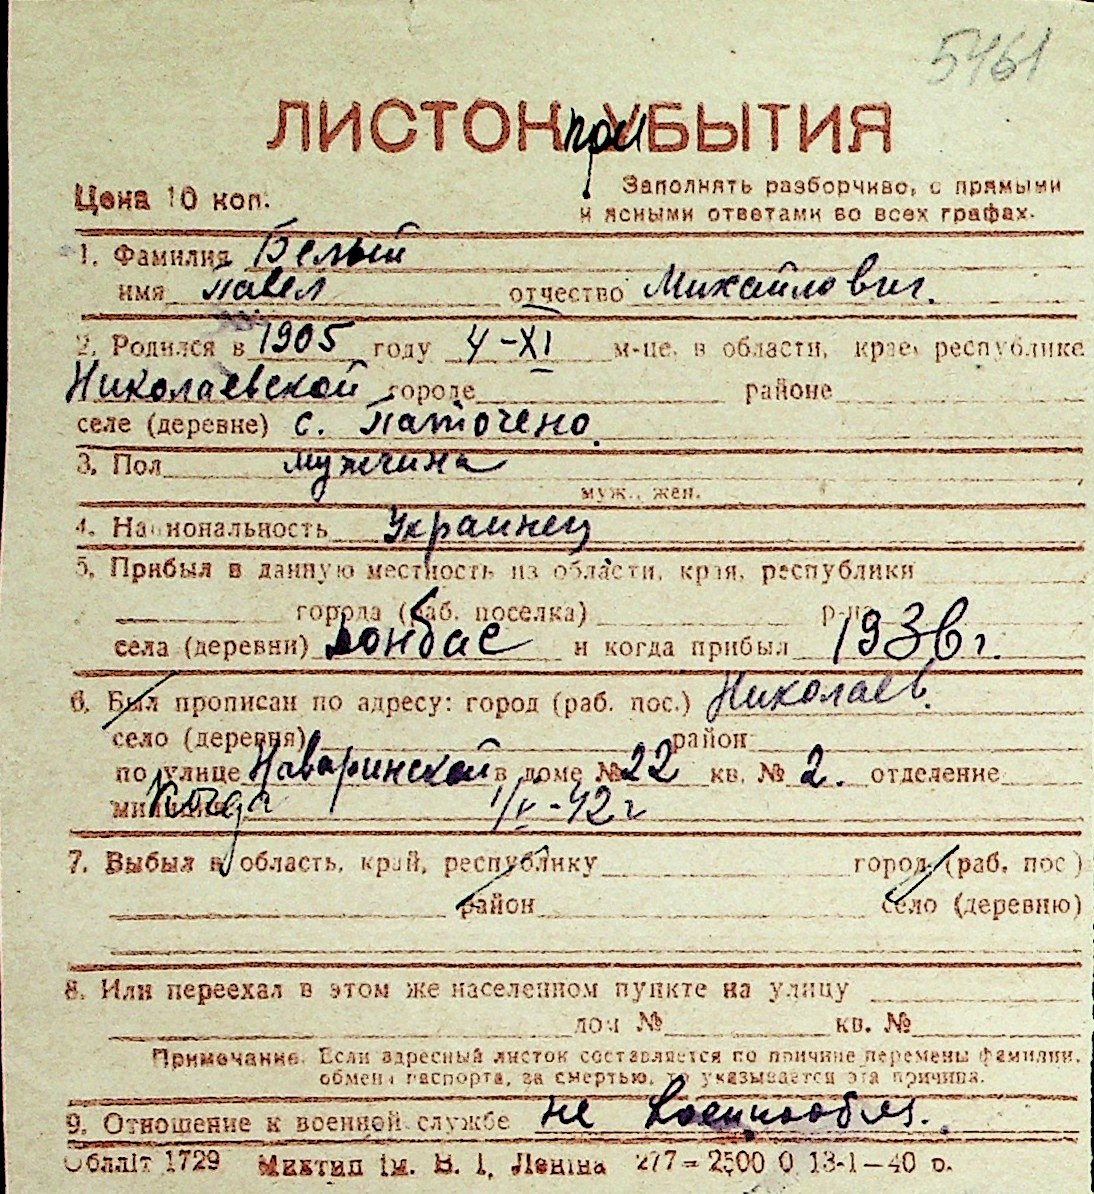 5461
ЛИСТОК при УБЫТИЯ
Цена 10 коп.
Заполнять разборчиво, с прямыми
и ясными ответами во всех графах.
1. Фамилия Белый
имя Павел отчество Михайлович.
2. Родился в 1905 году 4-XI м-це, в области, крае, республике
Николаевской городе районе
селе (деревне) с. Паточено
3. Пол мужчина
муж., жен.
4. Национальность Украинец
5. Прибыл в данную местность из области, края, республики
города (раб. поселка) р-на
села (деревни) Донбас и когда прибыл 1936 г.
6. Был прописан по адресу: город (раб. пос.) Николаев.
село (деревня) район
по улице Наваринской в доме № 22 кв. № 2. отделение
милиции Когда 1/V-42 г
7. Выбыл в область, край, республику город (раб. пос.)
район село (деревню)
8. Или переехал в этом же населенном пункте на улицу
дом № кв. №
Примечание. Если адресный листок составляется по причине перемены фамилии,
обмена паспорта, за смертью, то указывается эта причина.
9. Отношение к военной службе не военнообяз.
Обллiт 1729 Миктип iм. В. I. Ленiна 277—2500 0 13-1—40 р.